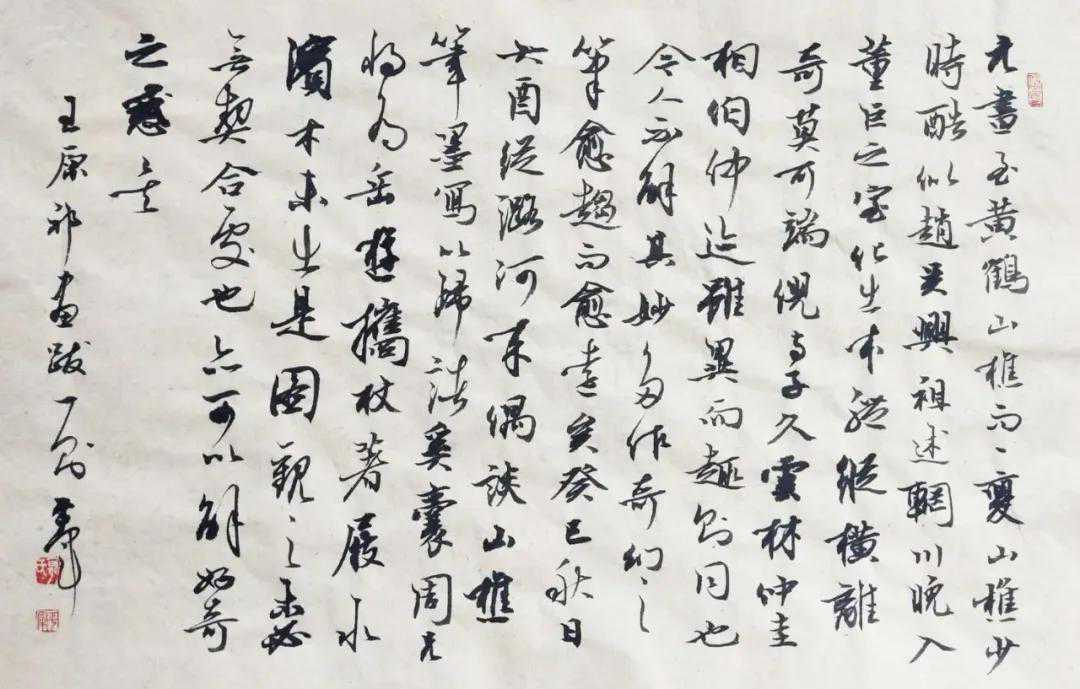 元畫至黃鶴山樵而一變山樵少
時酷似趙吳興祖述輞川晚入
董巨之室化出本體縱橫離
奇莫可端倪與子久雲林仲圭
相伯仲迹雖異而趣則同也
今人不解其妙多作奇幻之
筆愈趨而愈遠矣癸巳秋日
酉從潞河來偶談山樵
筆墨寫以歸諸奚囊周兄
將為岳遊攜杖著屐水
濱木末出是圖觀之未必
無契合處也亦可以解好奇
之惑矣
王原祁畫跋一則